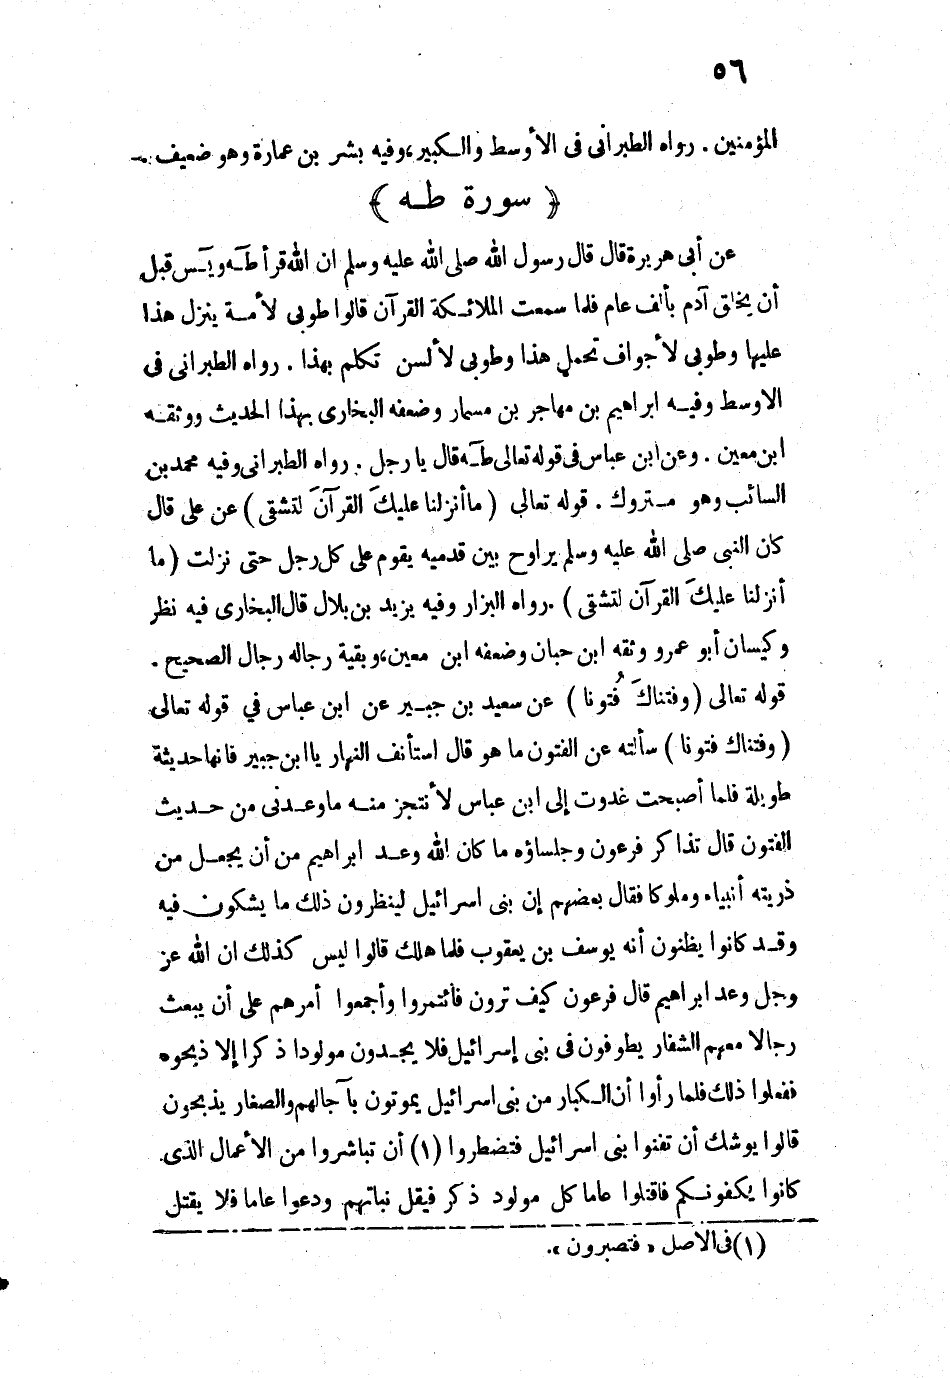 ٥٦
المؤمنين . رواه الطبرانى فى الأوسط والكبير، وفيه بشر بن عمارة وهو ضعيف .
﴿ سورة طه ﴾
عن أبى هريرة قال قال رسول الله صلى الله عليه وسلم ان الله قرأ طـٓه ويـٓس قبل
أن يخلق آدم بألف عام فلما سمعت الملائكة القرآن قالوا طوبى لأمة ينزل هذا
عليها وطوبى لأجواف تحمل هذا وطوبى لألسن تكلم بهذا . رواه الطبرانى فى
الاوسط وفيه ابراهيم بن مهاجر بن مسمار وضعفه البخارى بهذا الحديث ووثقه
ابن معين . وعن ابن عباس فى قوله تعالى طـٓه قال يا رجل . رواه الطبرانى وفيه محمد بن
السائب وهو متروك . قوله تعالى ( ما أنزلنا عليكَ القرآنَ لتشقى ) عن على قال
كان النبى صلى الله عليه وسلم يراوح بين قدميه يقوم على كل رجل حتى نزلت ( ما
أنزلنا عليكَ القرآن لتشقى ) . رواه البزار وفيه يزيد بن بلال قال البخارى فيه نظر
وكيسان أبو عمرو وثقه ابن حبان وضعفه ابن معين، وبقية رجاله رجال الصحيح .
قوله تعالى ( وفتناكَ فُتونا ) عن سعيد بن جبير عن ابن عباس في قوله تعالى
( وفتناك فتونا ) سألته عن الفتون ما هو قال استأنف النهار يا ابن جبير فانها حديثة
طويلة فلما أصبحت غدوت إلى ابن عباس لأنتجز منه ما وعدنى من حديث
الفتون قال تذاكر فرعون وجلساؤه ما كان الله وعد ابراهيم من أن يجعل من
ذريته أنبياء وملوكا فقال بعضهم إن بنى اسرائيل لينظرون ذلك ما يشكون فيه
وقد كانوا يظنون أنه يوسف بن يعقوب فلما هلك قالوا ليس كذلك ان الله عز
وجل وعد ابراهيم قال فرعون كيف ترون فأتمروا وأجمعوا أمرهم على أن يبعث
رجالا معهم الشفار يطوفون فى بنى إسرائيل فلا يجدون مولودا ذكرا إلا ذبحوه
ففعلوا ذلك فلما رأوا أن الكبار من بنى اسرائيل يموتون بآجالهم والصغار يذبحون
قالوا يوشك أن تفنوا بنى اسرائيل فتضطروا (١) أن تباشروا من الأعمال الذى
كانوا يكفونكم فاقتلوا عاما كل مولود ذكر فيقل نباتهم ودعوا عاما فلا يقتل
(١) فى الاصل « فتصبرون ».